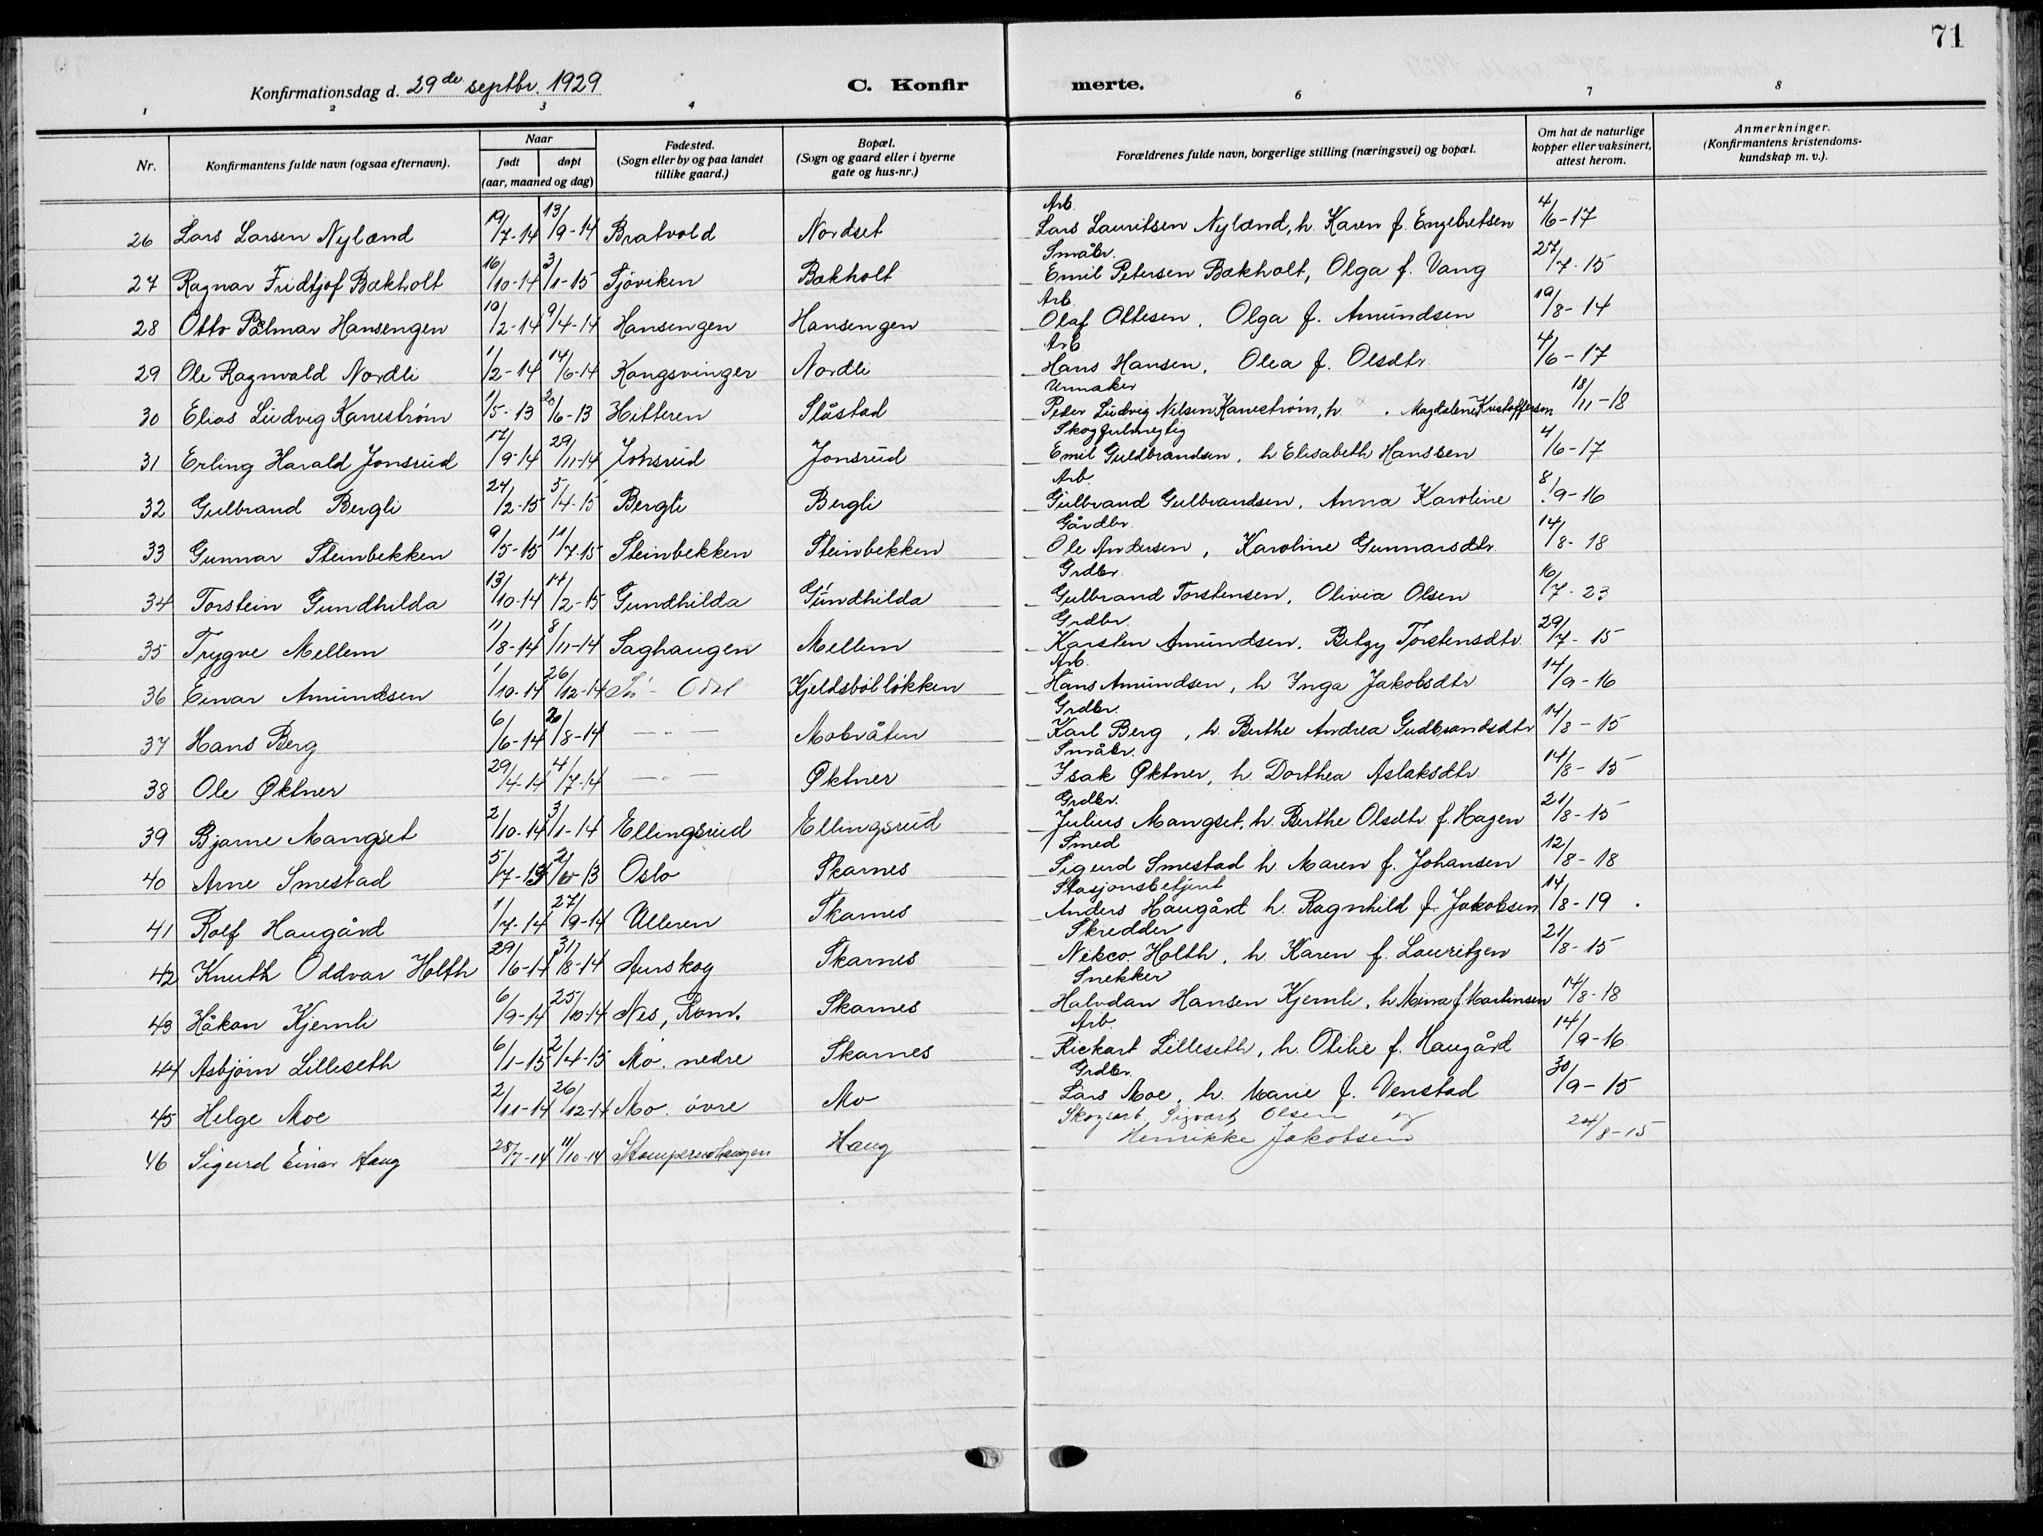 71
Konfirmationsdag d. 29de septbr. 1929 C. Konfirmerte.
1 2 3 4 6 7 8
Nr. Konfirmantens fulde navn (ogsaa efternavn). Naar født døpt (aar, maaned og dag) Fødested. (Sogn eller by og paa landet tillike gaard.) Bopæl. (Sogn og gaard eller i byerne gate og hus-nr.) Forældrenes fulde navn, borgerlige stilling (næringsvei) og bopæl. Om hat de naturlige kopper eller vaksinert, attest herom. Anmerkninger. (Konfirmantens kristendomskundskap m. v.).
26 Lars Larsen Nyland 19/7-14 13/9-14 Bratvold Nordset Arb. Lars Lauritsen Nyland, h. Karen f. Engebretsen 4/6-17
27 Ragnar Fridtjof Bækholt 16/10-14 3/1-15 Sjøviken Bækholt Småbr. Emil Petersen Bækholt, Olga f. Vang 27/7-15
28 Otto Palmar Hansengen 10/2-14 9/4-14 Hansengen Hansengen Arb. Olaf Ottesen, Olga f. Amundsen 19/8-14
29 Ole Ragnvald Nordli 1/2-14 14/6-14 Kongsvinger Nordli Arb Hans Hansen, Olea f. Olsdtr 4/6-17
30 Elias Ludvig Kanestrøm 1/5-13 20/6-13 Hitteren Slåstad Urmaker Peder Ludvig Nilsen Kanestrøm, h. Magdalene Kristoffersen 18/11-18
31 Erling Harald Jonsrud 17/9-14 29/11-14 Jonsrud Jonsrud Skogfulmegtig Emil Guldbrandsen, h Elisabeth Hanssen 4/6-17
32 Gulbrand Bergli 24/2-15 5/4-15 Bergli Bergli Arb. Gulbrand Gulbrandsen, Anna Karoline 8/9-16
33 Gunnar Steinbekken 9/5-15 11/7-15 Steinbekken Steinbekken Gårdbr. Ole Andersen, Karoline Gunnarsdtr 14/8-18
34 Torstein Gundhilda 13/10-14 14/2-15 Gundhilda Gundhilda Grdbr. Gulbrand Torstensen, Olivia Olsen 16/7-23
35 Trygve Mellem 11/8-14 8/11-14 Saghaugen Mellem Grdbr. Karsten Amundsen, Betzy Torstensdtr. 29/7-15
36 Einar Amundsen 1/10-14 26/12-14 S. Odal Kjeldsbølløkken Arb. Hans Amundsen, h Inga Jakobsdtr 14/9-16
37 Hans Berg 6/6-14 2/8-14 — " — Mobråten Grdbr. Karl Berg, h. Berthe Andrea Gudbrandsdtr 14/8-15
38 Ole Øktner 29/4-14 4/7-14 — " — Øktner Småbr. Isak Øktner, h. Dorthea Aslaksdtr 14/8-15
39 Bjarne Mangset 2/10-14 3/1-14 Ellingsrud Ellingsrud Grdbr. Julius Mangset, h. Berthe Olsdtr f. Hagen 21/8-15
40 Arne Smestad 5/7-13 Oslo Skarnes Smed Sigurd Smestad h. Maren f. Johansen 12/8-18
41 Rolf Haugård 1/7-14 27/9-14 Ulleren Skarnes Stasjonsbetjent Anders Haugård h. Ragnhild f. Jakobsen 14/8-19.
42 Knuth Oddvar Holth 29/6-14 31/8-14 Aurskog Skarnes Skredder Nikco Holth, h Karen f. Lauritzen 21/8-15
43 Håkon Kjernli 6/9-14 25/10-14 Nes, Rom. Skarnes Snekker Halvdan Hansen Kjernli, h Mina f. Martinsen 14/8-18
44 Asbjørn Lilleseth 6/1-15 2/4-15 Mo. nedre Skarnes Arb. Rickart Lilleseth, h. Otilie f. Haugård 14/9-16
45 Helge Moe 2/11-14 26/12-14 Mo. övre Mo Grdbr. Lars Moe, h. Marie f. Venstad 30/9-15
46 Sigurd Einar Haug 28/7-14 11/10-14 Haug Skogsarb. Sigvart Olsen og Henrikke Jakobsen 24/8-15